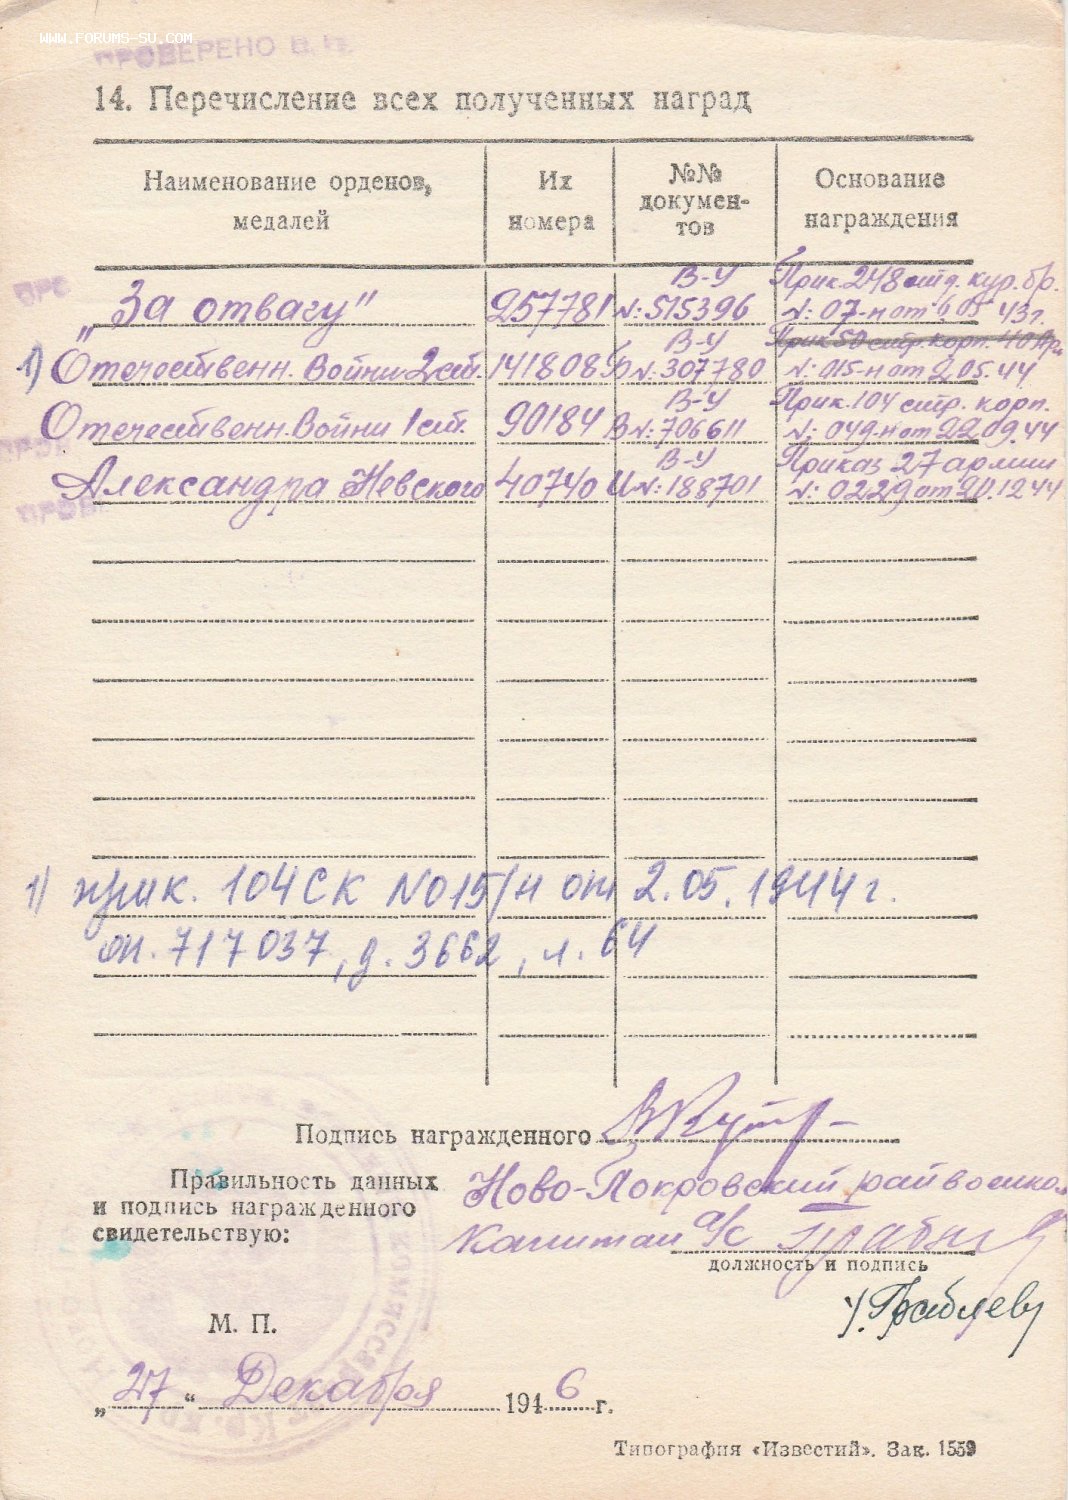 WWW.FORUMS-SU.COM
ПРОВЕРЕНО
14. Перечисление всех полученных наград
Наименование орденов, медалей
Их номера
№№ докумен-тов
Основание награждения
"За отвагу" 257781 В-У №: 515396 Прик. 248 отд. кур. бр. №: 07-н от 6 05 43г.
1) Отечественн. Войни 2 ст. 141808 В-У Б №: 307780 Прик 50 стр. корп. 40 Арм №: 015-н от 2.05.44
Отечественн. Войни 1 ст. 90184 В-У В №: 706611 Прик. 104 стр. корп. №: 049-н от 22.09.44
Александра Невского 40740 В-У И №: 188701 Приказ 27 армии №: 0229 от 20.12 44
1) прик. 104 СК N 015/н от 2.05.1944 г.
оп. 717037, д. 3662, л. 64
Подпись награжденного
Правильность данных
и подпись награжденного
свидетельствую:
Ново-Покровский райвоенком
Капитан а/с
должность и подпись
М. П.
„ 27 “ Декабря 1946 г.
Типография «Известий». Зак. 1559